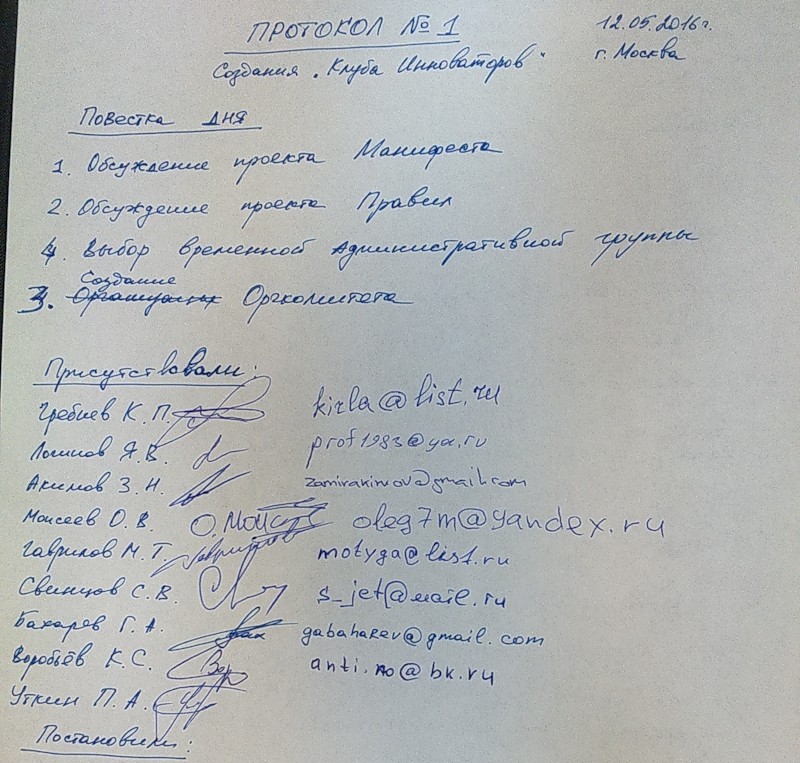 ПРОТОКОЛ № 1 12.05.2016г.
Создания "Клуба Инноваторов" г. Москва
Повестка дня
1. Обсуждение проекта Манифеста
2. Обсуждение проекта Правил
4. Выбор временной Административной группы
Создание
3. Оргкомитета
Присутствовали:
Гребнев К. П. kirla@list.ru
Логинов Я. В. prof1983@ya.ru
Акимов З. Н. zamirakimov@gmail.com
Моисеев О. В. oleg7m@yandex.ru
Гаврилов М. Т. motyga@list.ru
Свинцов С. В. s_jet@mail.ru
Бахарев Г. А. gabaharev@gmail.com
Воробьёв К. С. anti.no@bk.ru
Уткин П. А.
Постановили: